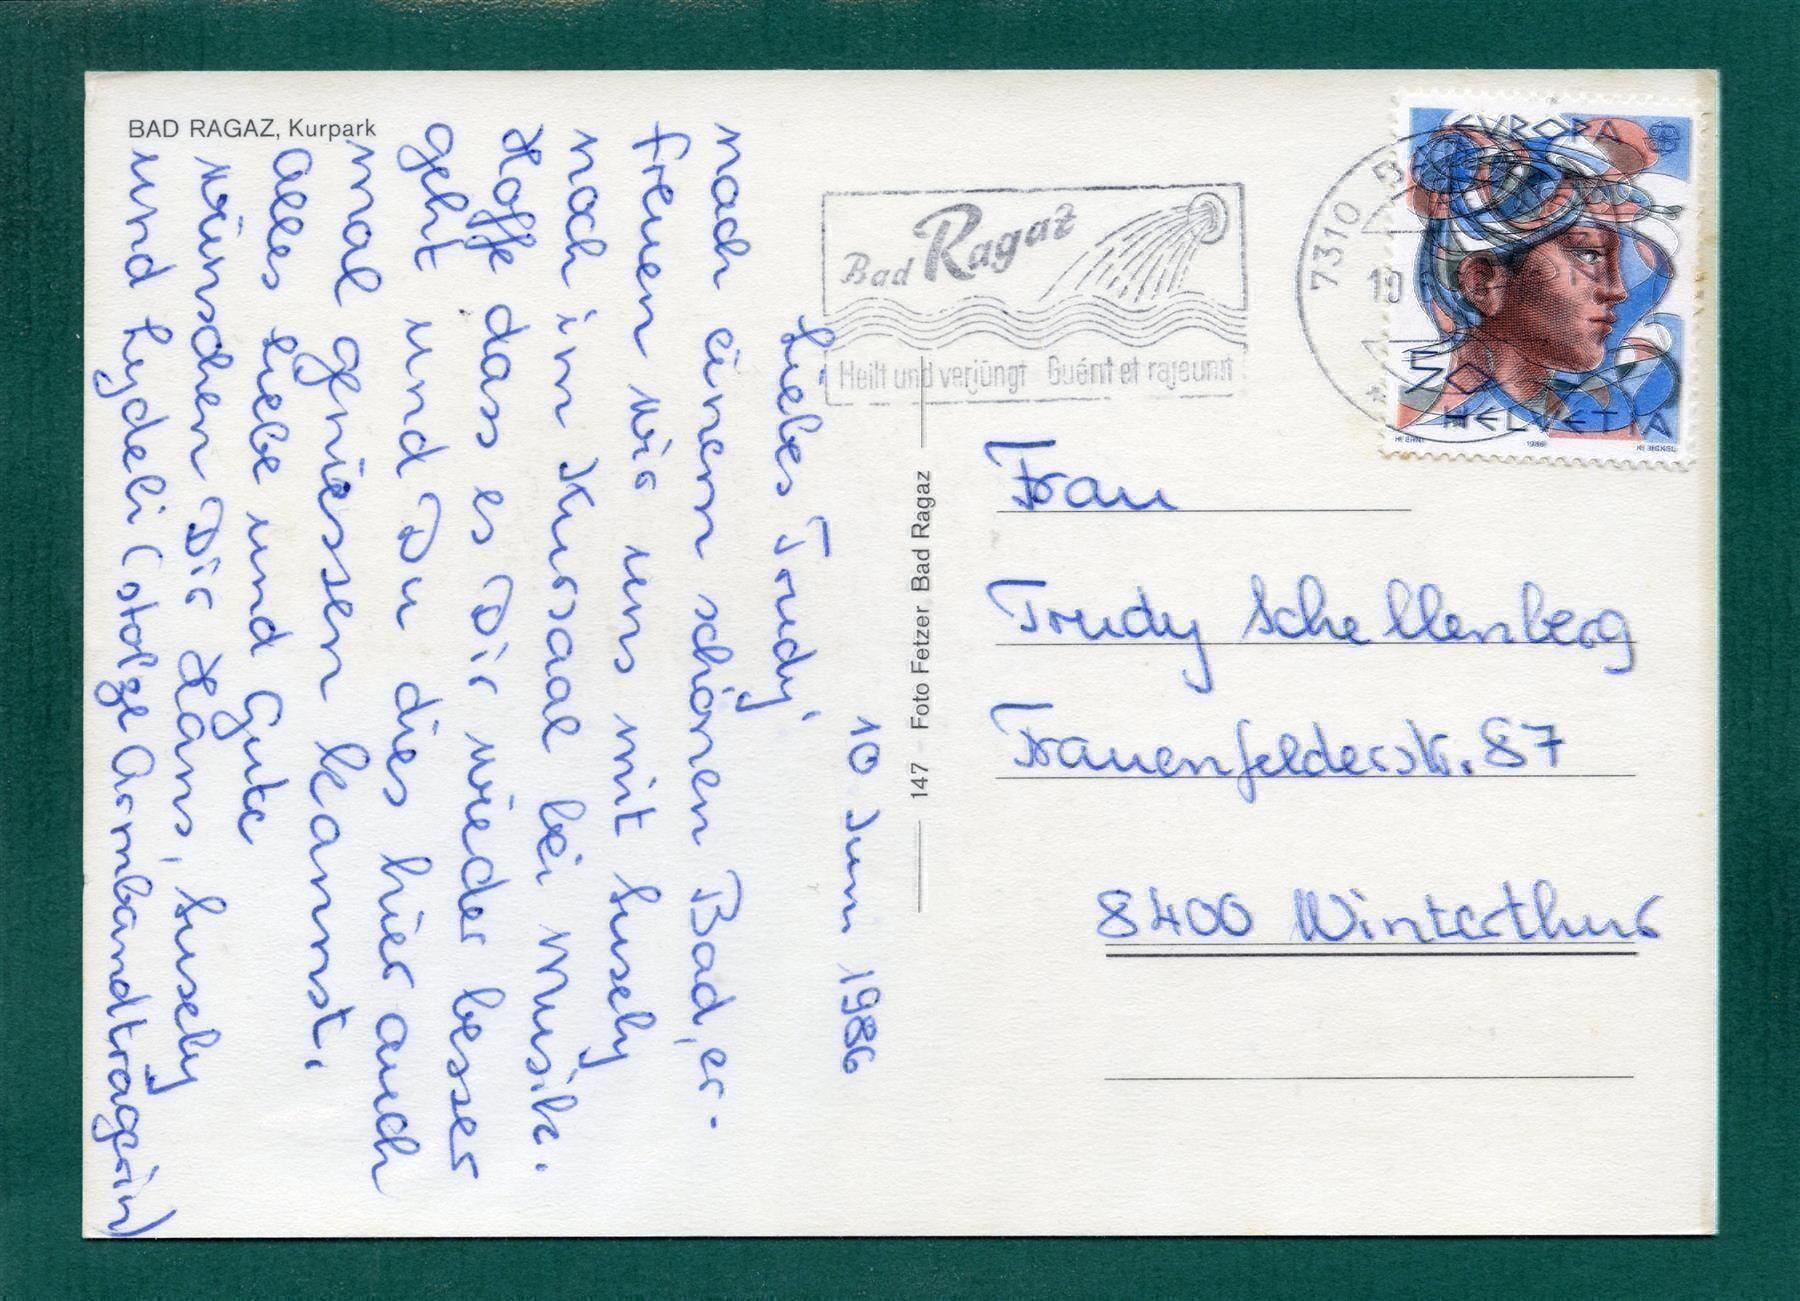 BAD RAGAZ, Kurpark
10 Juni 1986
Liebes Trudy,
nach einem schönen Bad, er-
freuen wir uns mit Lusely
noch im Kursaal bei Musik.
Hoffe das es Dir wieder besser
geht und Du dies hier auch
mal geniessen kannst.
Alles Liebe und Gute
wünschen Dir Hans, Lusely
und Lydeli (stolze Armbandträgerin)
147 Foto Fetzer Bad Ragaz
Bad Ragaz
Heilt und verjüngt Guérit et rajeunit
7310 B
10
EUROPA
50
HELVETIA
1986
Frau
Trudy Schellenberg
Frauenfelderstr. 87
8400 Winterthur